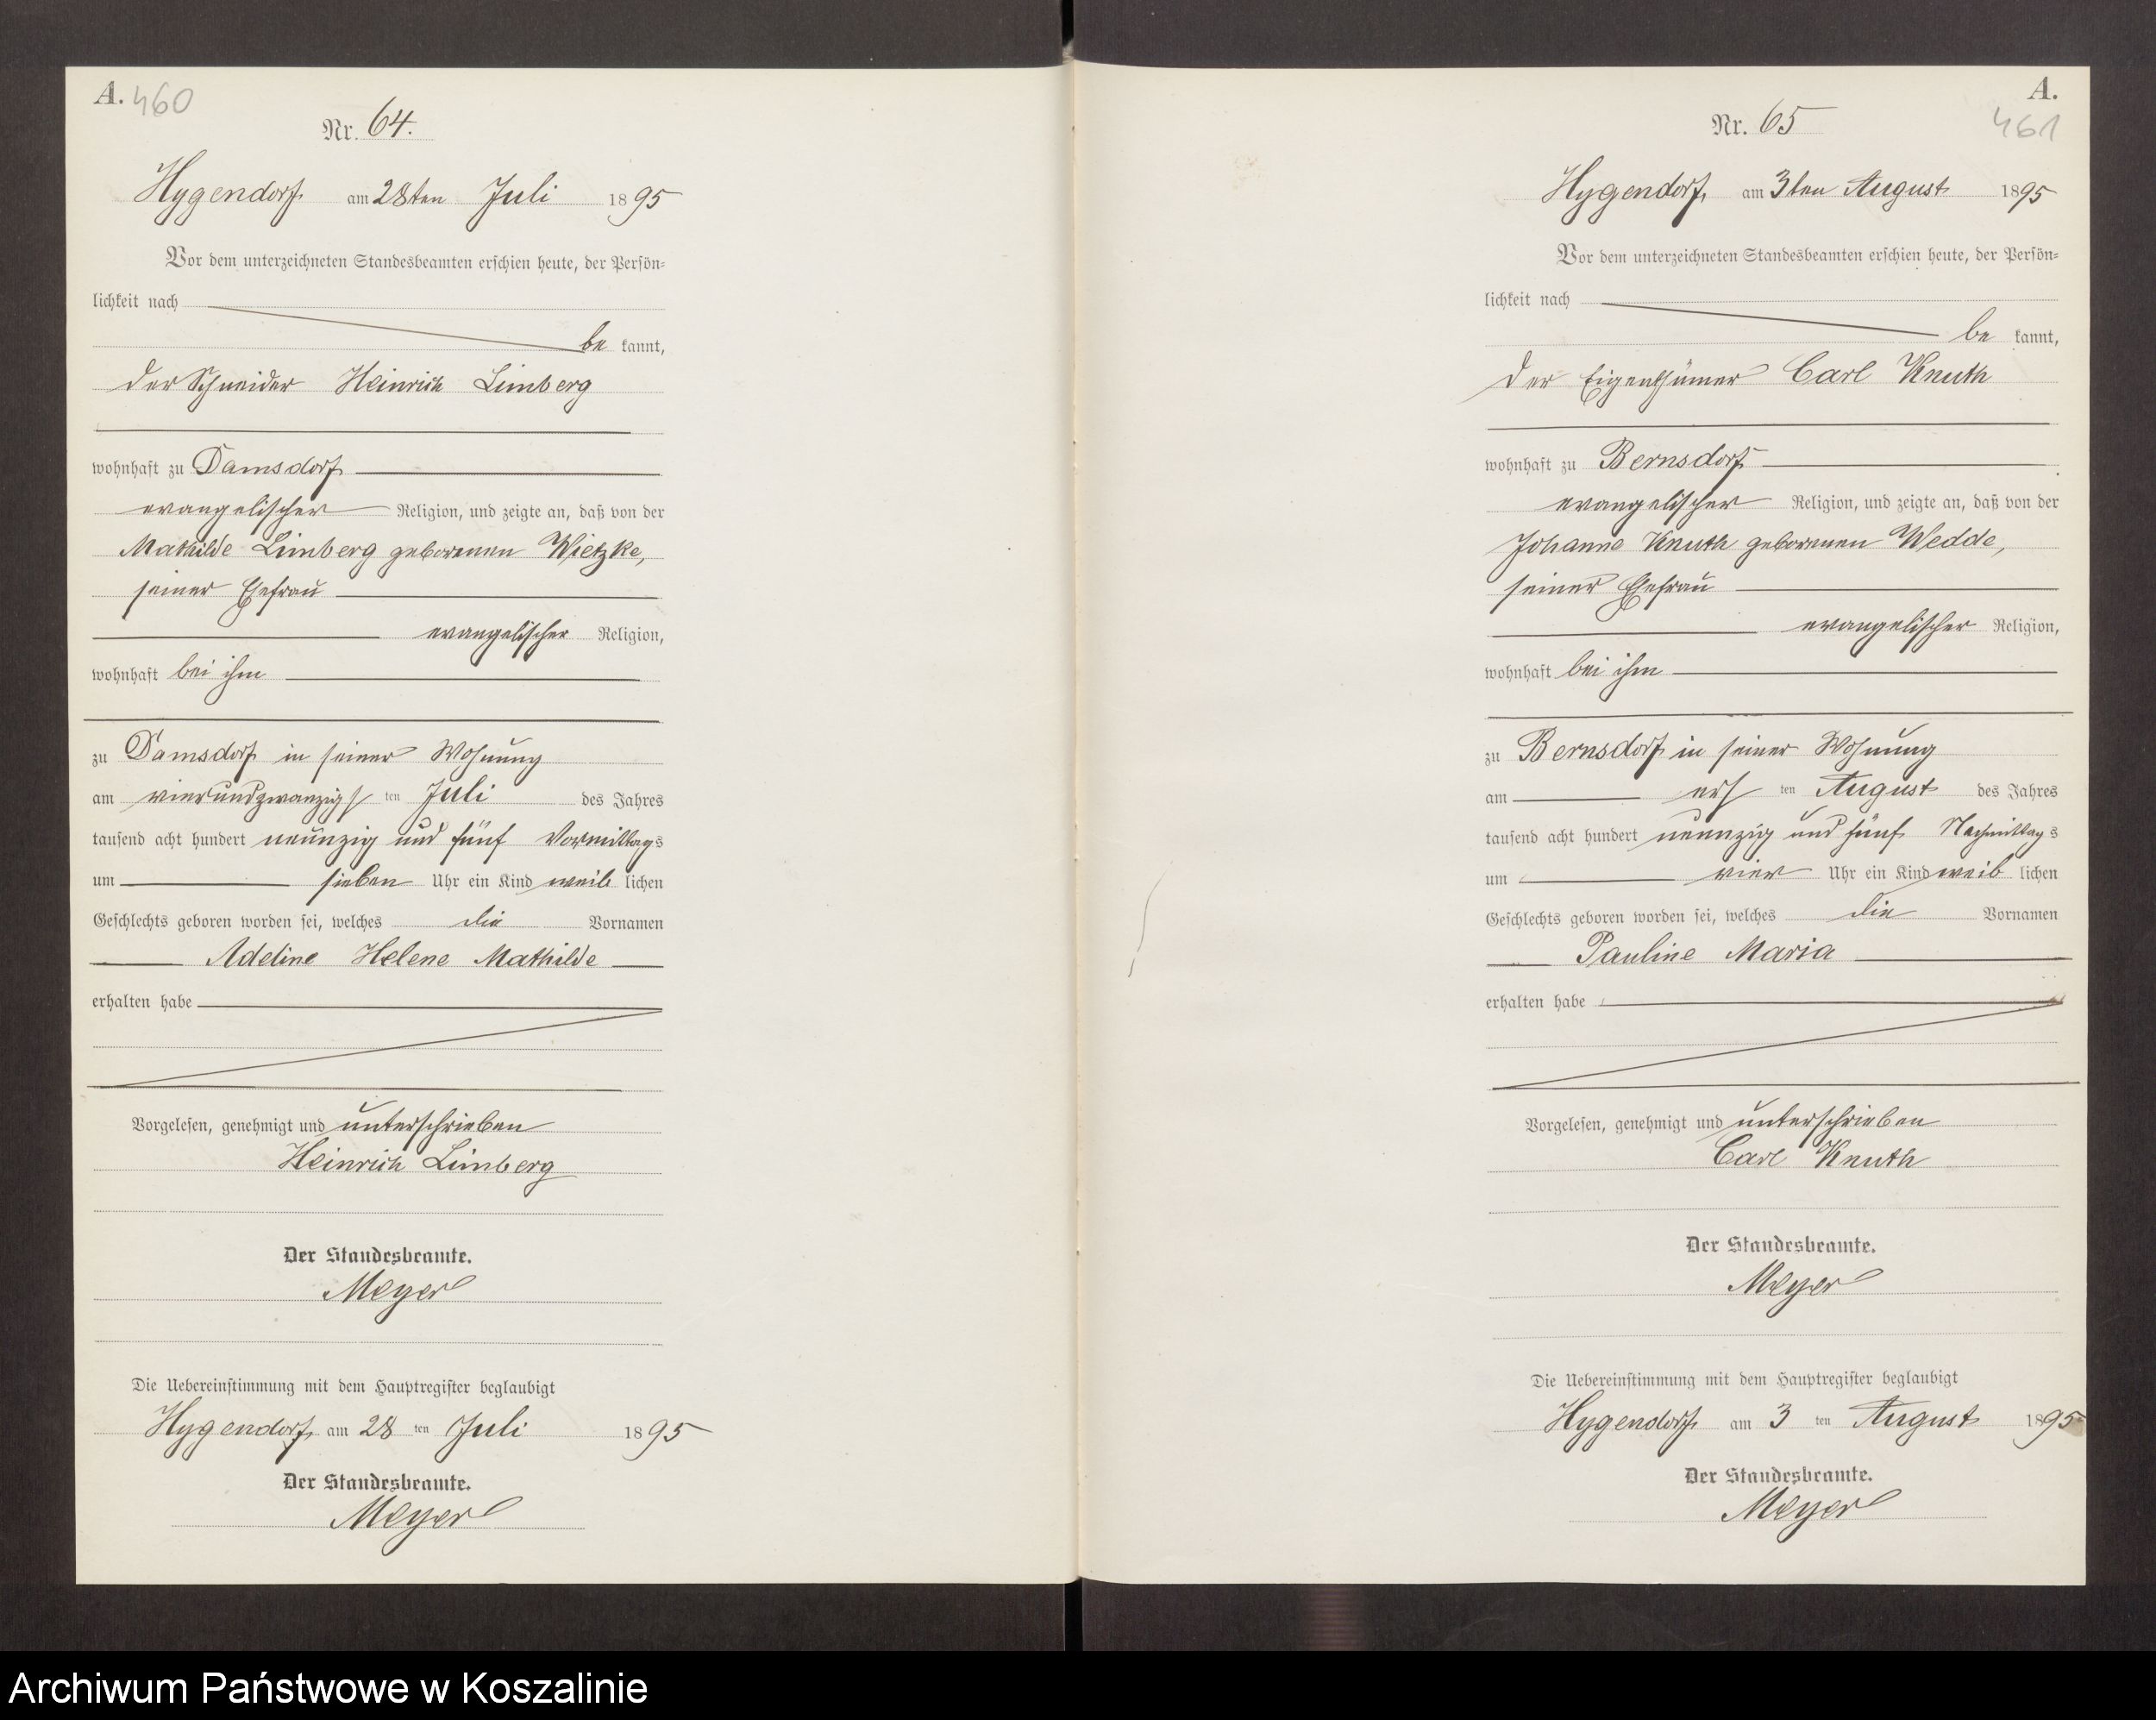 A. 460
Nr. 64.
Hygendorf am 28ten Juli 1895
Vor dem unterzeichneten Standesbeamten erschien heute, der Persön-
lichkeit nach
be kannt,
der Schneider Heinrich Limberg
wohnhaft zu Damsdorf
evangelischer Religion, und zeigte an, daß von der
Mathilde Limberg geborenen Wietzke,
seiner Ehefrau
evangelischer Religion,
wohnhaft bei ihm
zu Damsdorf in seiner Wohnung
am vierundzwanzigsten Juli des Jahres
tausend acht hundert neunzig und fünf Vormittags
um sieben Uhr ein Kind weiblichen
Geschlechts geboren worden sei, welches die Vornamen
Adeline Helene Mathilde
erhalten habe
Vorgelesen, genehmigt und unterschrieben
Heinrich Limberg
Der Standesbeamte.
Meyer
Die Uebereinstimmung mit dem Hauptregister beglaubigt
Hygendorf am 28ten Juli 1895
Der Standesbeamte.
Meyer
A.
461
Nr. 65
Hygendorf, am 3ten August 1895
Vor dem unterzeichneten Standesbeamten erschien heute, der Persön-
lichkeit nach
be kannt,
der Eigenthümer Carl Knuth
wohnhaft zu Bernsdorf
evangelischer Religion, und zeigte an, daß von der
Johanne Knuth geborenen Wedde,
seiner Ehefrau
evangelischer Religion,
wohnhaft bei ihm
zu Bernsdorf in seiner Wohnung
am ersten August des Jahres
tausend acht hundert neunzig und fünf Nachmittags
um vier Uhr ein Kind weiblichen
Geschlechts geboren worden sei, welches die Vornamen
Pauline Maria
erhalten habe
Vorgelesen, genehmigt und unterschrieben
Carl Knuth
Der Standesbeamte.
Meyer
Die Uebereinstimmung mit dem Hauptregister beglaubigt
Hygendorf am 3ten August 1895
Der Standesbeamte.
Meyer
Archiwum Państwowe w Koszalinie